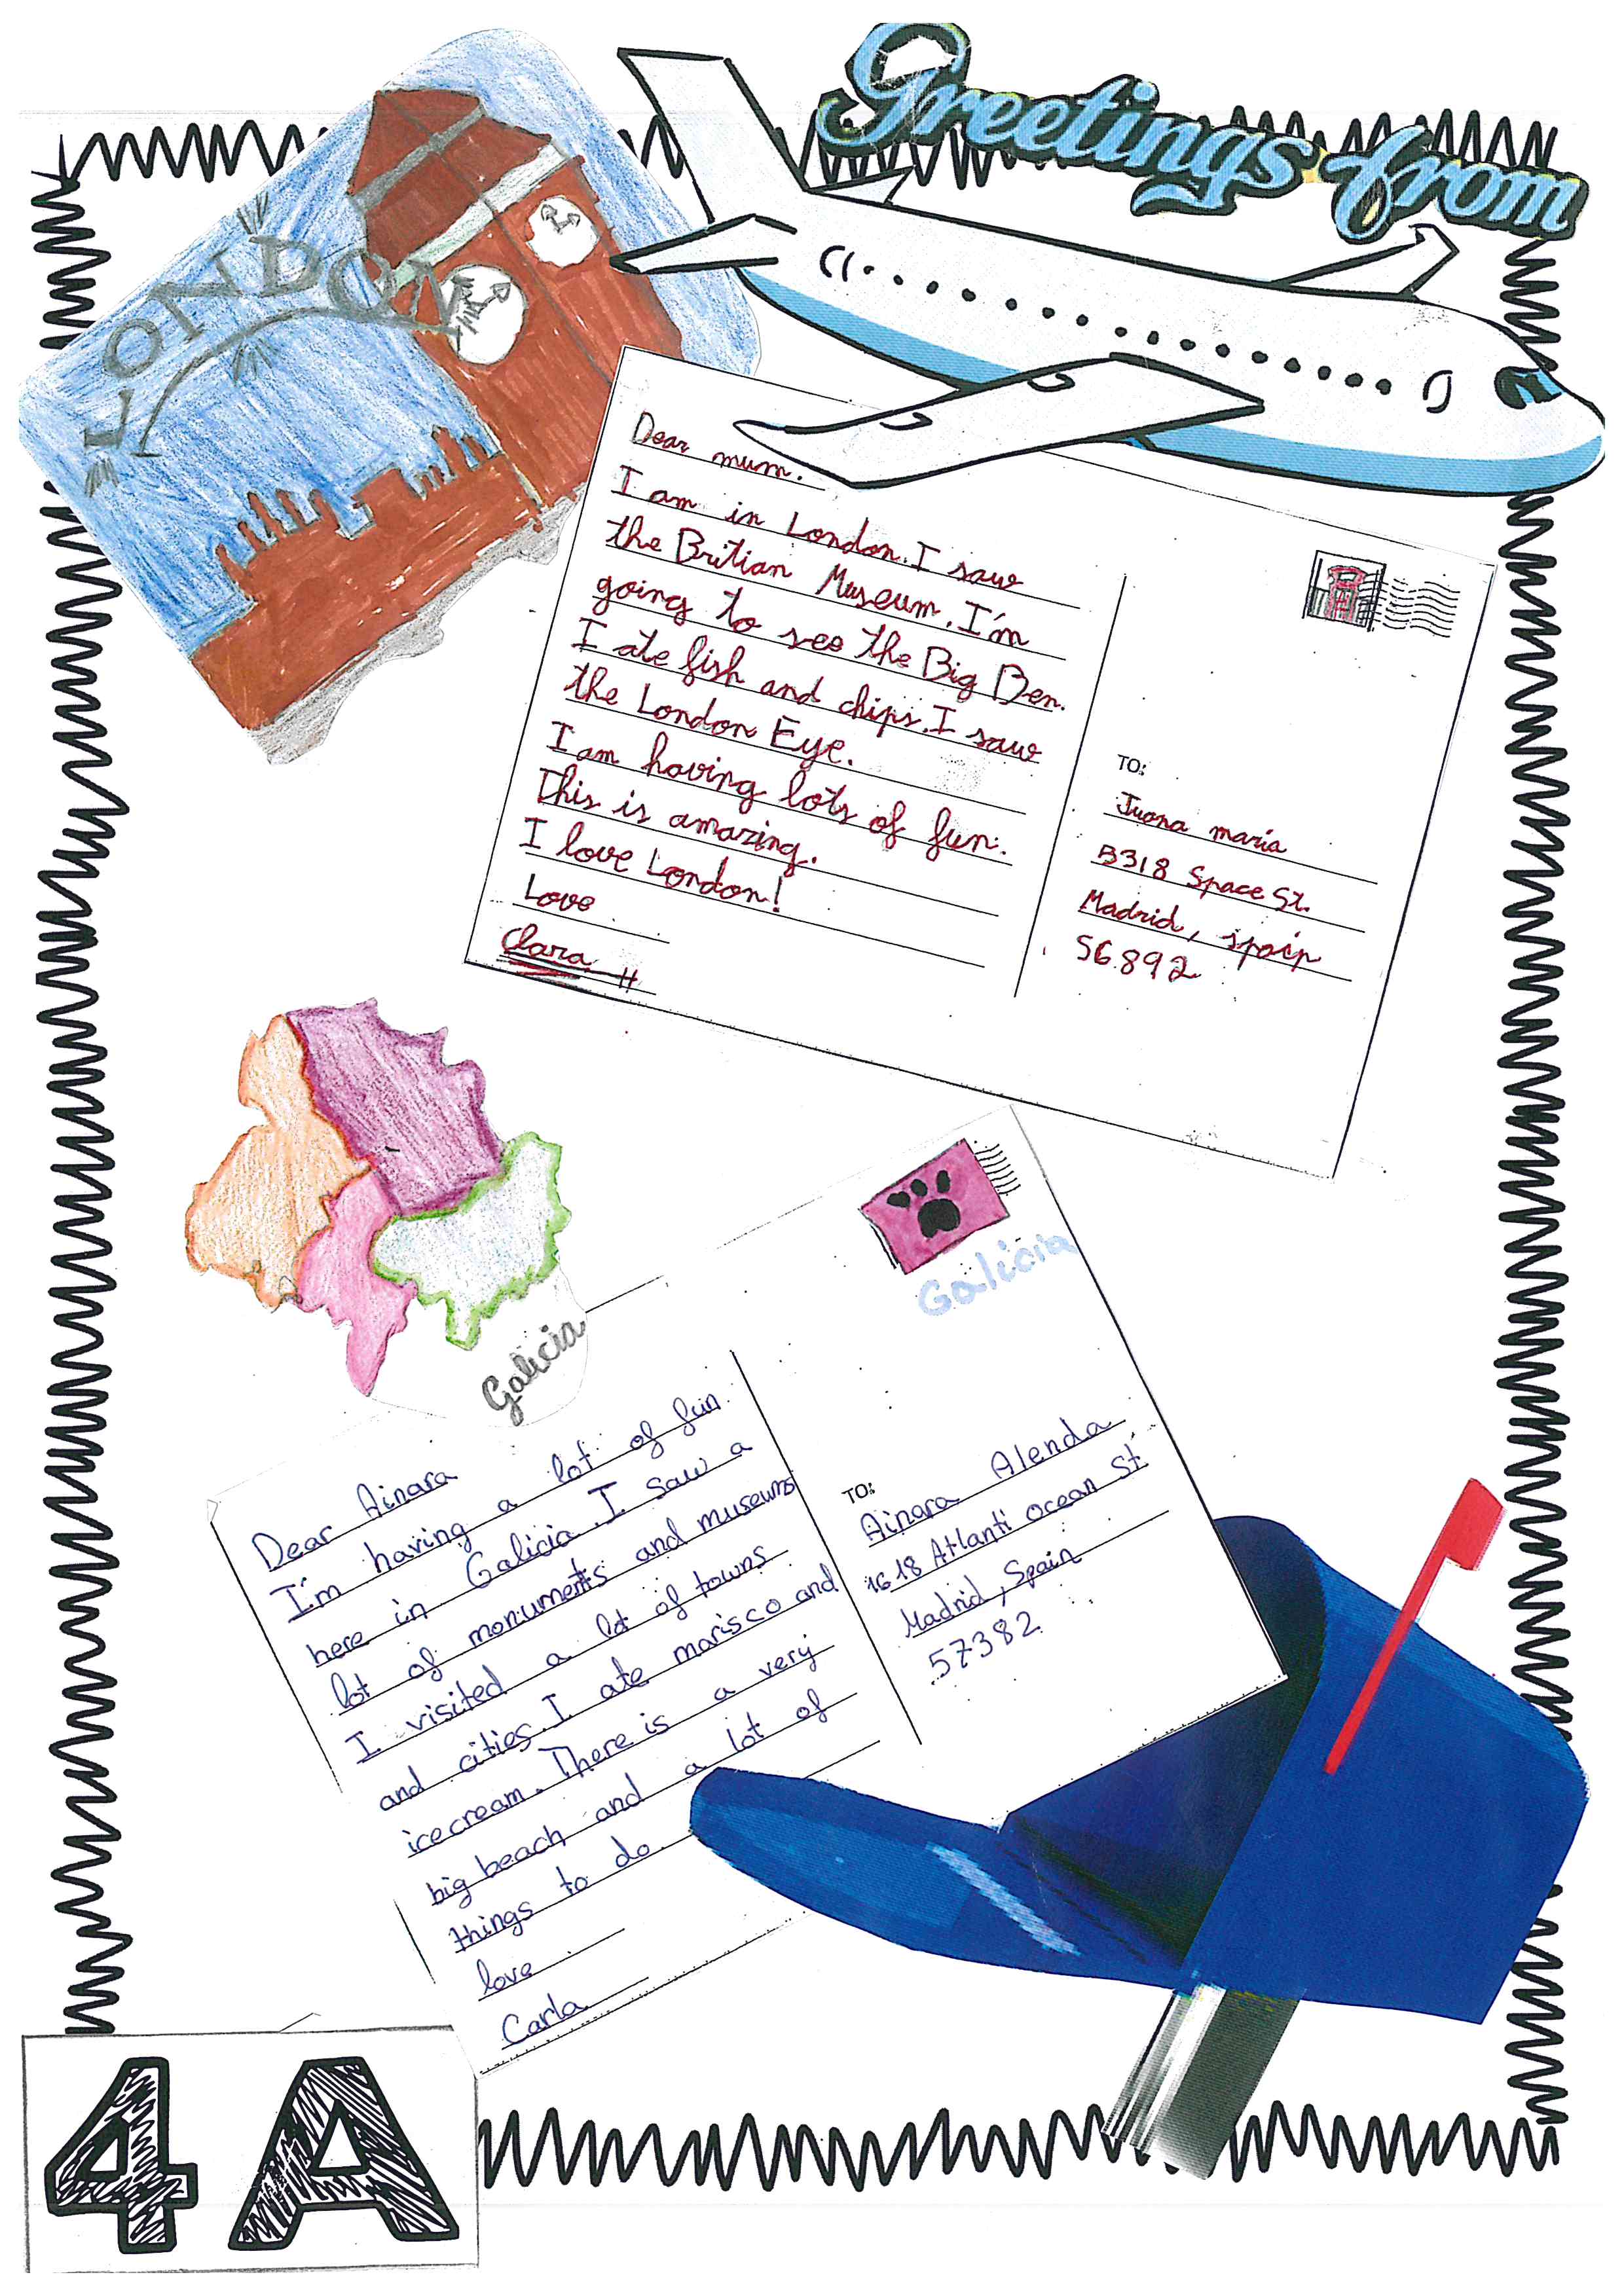 Greetings from
LONDON
Dear mum.
I am in London. I saw
the Britian Museum. I'm
going to see the Big Ben.
I ate fish and chips. I saw
the London Eye.
I am having lots of fun.
This is amazing.
I love London!
Love
Clara
TO:
Juana maría
5318 Space St.
Madrid, spain
56.892
Galicia
Galicia
Dear Ainara
I'm having a lot of fun
here in Galicia. I saw a
lot of monuments and museums
I visited a lot of towns
and cities. I ate marisco and
icecream. There is a very
big beach and a lot of
things to do.
love
Carla
TO:
Ainara Alenda
1618 Atlanti ocean St.
Madrid, Spain
57382
4A